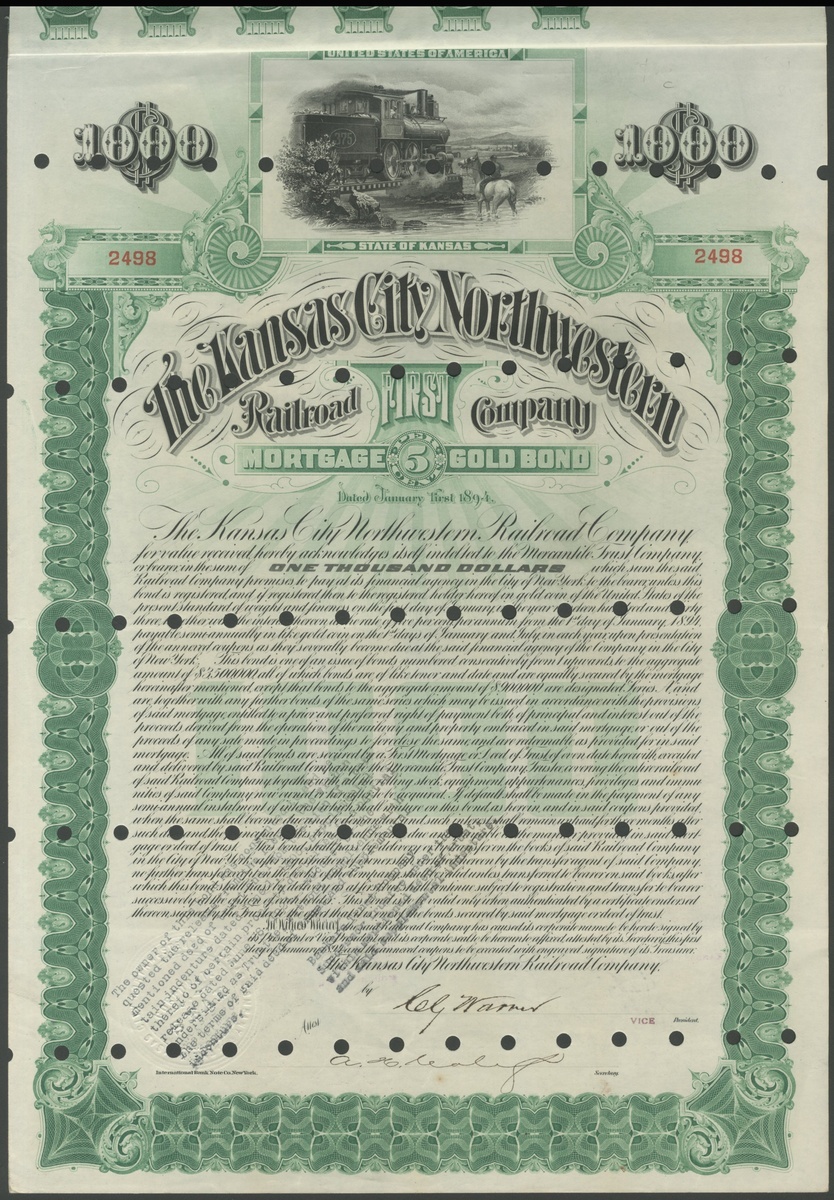 UNITED STATES OF AMERICA
1000 1000
175
STATE OF KANSAS
2498 2498
The Kansas City Northwestern
Railroad FIRST Company
MORTGAGE 5 PER CENT GOLD BOND
Dated January First 1894.
The Kansas City Northwestern Railroad Company
for value received, hereby acknowledges itself indebted to the Mercantile Trust Company,
or bearer, in the sum of ONE THOUSAND DOLLARS which sum the said
Railroad Company promises to pay at its financial agency in the City of New York to the bearer, unless this
bond is registered, and if registered then to the registered holder hereof in gold coin of the United States of the
present standard of weight and fineness on the first day of January in the year nineteen hundred and thirty
three together with interest thereon at the rate of five per cent per annum from the 1st day of January, 1894,
payable semi-annually in like gold coin on the 1st days of January and July, in each year, upon presentation
of the annexed coupons as they severally become due at the said financial agency of the Company in the City
of New York. This bond is one of an issue of bonds numbered consecutively from 1 upwards to the aggregate
amount of all of which bonds are of like tenor and date and are equally secured by the mortgage
hereinafter mentioned, except that bonds to the aggregate amount of are designated Series A and
are, together with any further bonds of the same series which may be issued in accordance with the provisions
of said mortgage, entitled to a prior and preferred right of payment both of principal and interest out of the
proceeds derived from the operation of the railway and property embraced in said mortgage or out of the
proceeds of any sale made in proceedings to foreclose the same, and are redeemable as provided for in said
mortgage. All of said bonds are secured by a First Mortgage or Deed of Trust of even date herewith, executed
and delivered by said Railroad Company to the Mercantile Trust Company, Trustee, covering the entire railroad
of said Railroad Company together with all the
of said Company now owned or hereafter acquired. Default shall be made in the payment of any
semi-annual instalment of interest on this bond, as herein, and in said coupons provided,
when the same shall become due and be demanded, and such interest shall remain unpaid for three months after
such demand, the principal of this bond shall become due and payable in the manner provided in said mort-
gage or deed of trust. This bond shall pass by delivery or by transfer on the books of said Railroad Company
in the City of New York. After registration of ownership certified hereon by the transfer agent of said Company,
no further transfer except on the books of the Company shall be valid unless transferred to bearer on said books after
which this bond shall pass by delivery as at first but shall continue subject to registration and transfer to bearer
successively at the option of each holder. This bond shall be valid only when authenticated by certificate endorsed
thereon signed by the Trustee to the effect that it is one of the bonds secured by said mortgage or deed of trust.
In Witness Whereof, the said Railroad Company has caused its corporate name to be hereto signed by
its President or Vice President and its corporate seal to be hereunto affixed, attested by its Secretary, this first
day of January 1894 and the annexed coupons to be executed with engraved signature of its Treasurer.
The Kansas City Northwestern Railroad Company,
by C. J. Warner
VICE President.
Attest
Secretary
International Bank Note Co. New York.